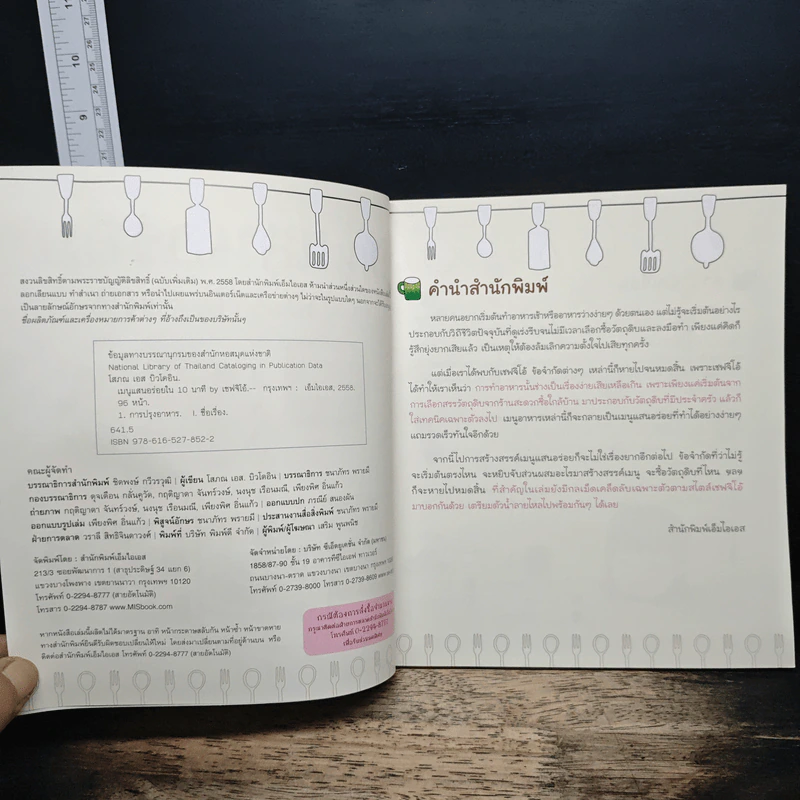 สงวนลิขสิทธิ์ตามพระราชบัญญัติลิขสิทธิ์ (ฉบับเพิ่มเติม) พ.ศ. 2558 โดยสำนักพิมพ์เอ็มไอเอส ห้ามนำส่วนหนึ่งส่วนใดของหนังสือ
ลอกเลียนแบบ ทำสำเนา ถ่ายเอกสาร หรือนำไปเผยแพร่บนอินเตอร์เน็ตและเครือข่ายต่างๆ ไม่ว่าจะในรูปแบบใดๆ นอกจากจะได้รับ
เป็นลายลักษณ์อักษรจากทางสำนักพิมพ์เท่านั้น
ชื่อผลิตภัณฑ์และเครื่องหมายการค้าต่างๆ ที่อ้างถึงเป็นของบริษัทนั้นๆ
ข้อมูลทางบรรณานุกรมของสำนักหอสมุดแห่งชาติ
National Library of Thailand Cataloging in Publication Data
โสภณ เอส บิวโดอิน.
เมนูแสนอร่อยใน 10 นาที by เชฟจีโอ้.-- กรุงเทพฯ : เอ็มไอเอส, 2558.
96 หน้า.
1. การปรุงอาหาร. I. ชื่อเรื่อง.
641.5
ISBN 978-616-527-852-2
คณะผู้จัดทำ
บรรณาธิการสำนักพิมพ์ ชิตพงษ์ กวีวรวุฒิ | ผู้เขียน โสภณ เอส. บิวโดอิน | บรรณาธิการ ชนาภัทร พรายมี
กองบรรณาธิการ ดุจเดือน กลั่นคูวัด, กฤติญาดา จันทร์วงษ์, นงนุช เรือนมณี, เพียงพิศ อิ่นแก้ว
ถ่ายภาพ กฤติญาดา จันทร์วงษ์, นงนุช เรือนมณี, เพียงพิศ อิ่นแก้ว | ออกแบบปก ภรณีย์ สนองผัน
ออกแบบรูปเล่ม เพียงพิศ อิ่นแก้ว | พิสูจน์อักษร ชนาภัทร พรายมี | ประสานงานสื่อสิ่งพิมพ์ ชนาภัทร พรายมี
ฝ่ายการตลาด วราลี สิทธิจินดาวงศ์ | พิมพ์ที่ บริษัท พิมพ์ดี จำกัด | ผู้พิมพ์/ผู้โฆษณา เสริม พูนพนิช
จัดพิมพ์โดย : สำนักพิมพ์เอ็มไอเอส
213/3 ซอยพัฒนาการ 1 (สาธุประดิษฐ์ 34 แยก 6)
แขวงบางโพงพาง เขตยานนาวา กรุงเทพฯ 10120
โทรศัพท์ 0-2294-8777 (สายอัตโนมัติ)
โทรสาร 0-2294-8787 www.MISbook.com
จัดจำหน่ายโดย : บริษัท ซีเอ็ดยูเคชั่น จำกัด (มหาชน)
1858/87-90 ชั้น 19 อาคารทีซีไอเอฟ ทาวเวอร์
ถนนบางนา-ตราด แขวงบางนา เขตบางนา กรุงเทพฯ
โทรศัพท์ 0-2739-8000 โทรสาร 0-2739-8609
หากหนังสือเล่มนี้ผลิตไม่ได้มาตรฐาน อาทิ หน้ากระดาษสลับกัน หน้าซ้ำ หน้าขาดหาย
ทางสำนักพิมพ์ยินดีรับผิดชอบเปลี่ยนให้ใหม่ โดยส่งมาเปลี่ยนตามที่อยู่ด้านบน หรือ
ติดต่อสำนักพิมพ์เอ็มไอเอส โทรศัพท์ 0-2294-8777 (สายอัตโนมัติ)
กรณีต้องการสั่งซื้อจำนวนมาก
โทรศัพท์ 0-2294-8777
คำนำสำนักพิมพ์
หลายคนอยากเริ่มต้นทำอาหารเช้าหรืออาหารว่างง่ายๆ ด้วยตนเอง แต่ไม่รู้จะเริ่มต้นอย่างไร
ประกอบกับวิถีชีวิตปัจจุบันที่ดูเร่งรีบจนไม่มีเวลาเลือกซื้อวัตถุดิบและลงมือทำ เพียงแค่คิดก็
รู้สึกยุ่งยากเสียแล้ว เป็นเหตุให้ต้องล้มเลิกความตั้งใจไปเสียทุกครั้ง
แต่เมื่อเราได้พบกับเชฟจีโอ้ ข้อจำกัดต่างๆ เหล่านี้ก็หายไปจนหมดสิ้น เพราะเชฟจีโอ้
ได้ทำให้เราเห็นว่า การทำอาหารนั้นช่างเป็นเรื่องง่ายเสียเหลือเกิน เพราะเพียงแค่เริ่มต้นจาก
การเลือกสรรวัตถุดิบจากร้านสะดวกซื้อใกล้บ้าน มาประกอบกับวัตถุดิบที่มีประจำครัว แล้วก็
ใส่เทคนิคเฉพาะตัวลงไป เมนูอาหารเหล่านี้ก็จะกลายเป็นเมนูแสนอร่อยที่ทำได้อย่างง่ายๆ
แถมรวดเร็วทันใจอีกด้วย
จากนี้ไปการสร้างสรรค์เมนูแสนอร่อยก็จะไม่ใช่เรื่องยากอีกต่อไป ข้อจำกัดที่ว่าไม่รู้
จะเริ่มต้นตรงไหน จะหยิบจับส่วนผสมอะไรมาสร้างสรรค์เมนู จะซื้อวัตถุดิบที่ไหน ฯลฯ
ก็จะหายไปหมดสิ้น ที่สำคัญในเล่มยังมีกลเม็ดเคล็ดลับเฉพาะตัวตามสไตล์เชฟจีโอ้
มาบอกกันด้วย เตรียมตัวน้ำลายไหลไปพร้อมกันๆ ได้เลย
สำนักพิมพ์เอ็มไอเอส